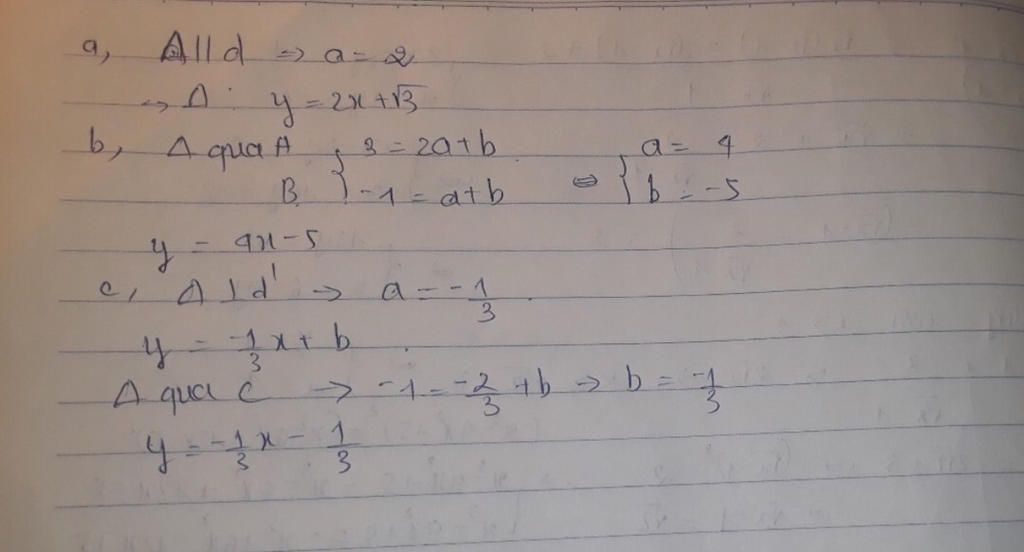 a, Δ // d => a = 2
=> Δ : y = 2x + √3
b, Δ qua A { 3 = 2a + b <=> { a = 4
B { -1 = a + b { b = -5
y = 4x - 5
c, Δ ⊥ d' => a = -1/3.
y = -1/3 x + b.
Δ qua C -> -1 = -2/3 + b => b = -1/3
y = -1/3 x - 1/3